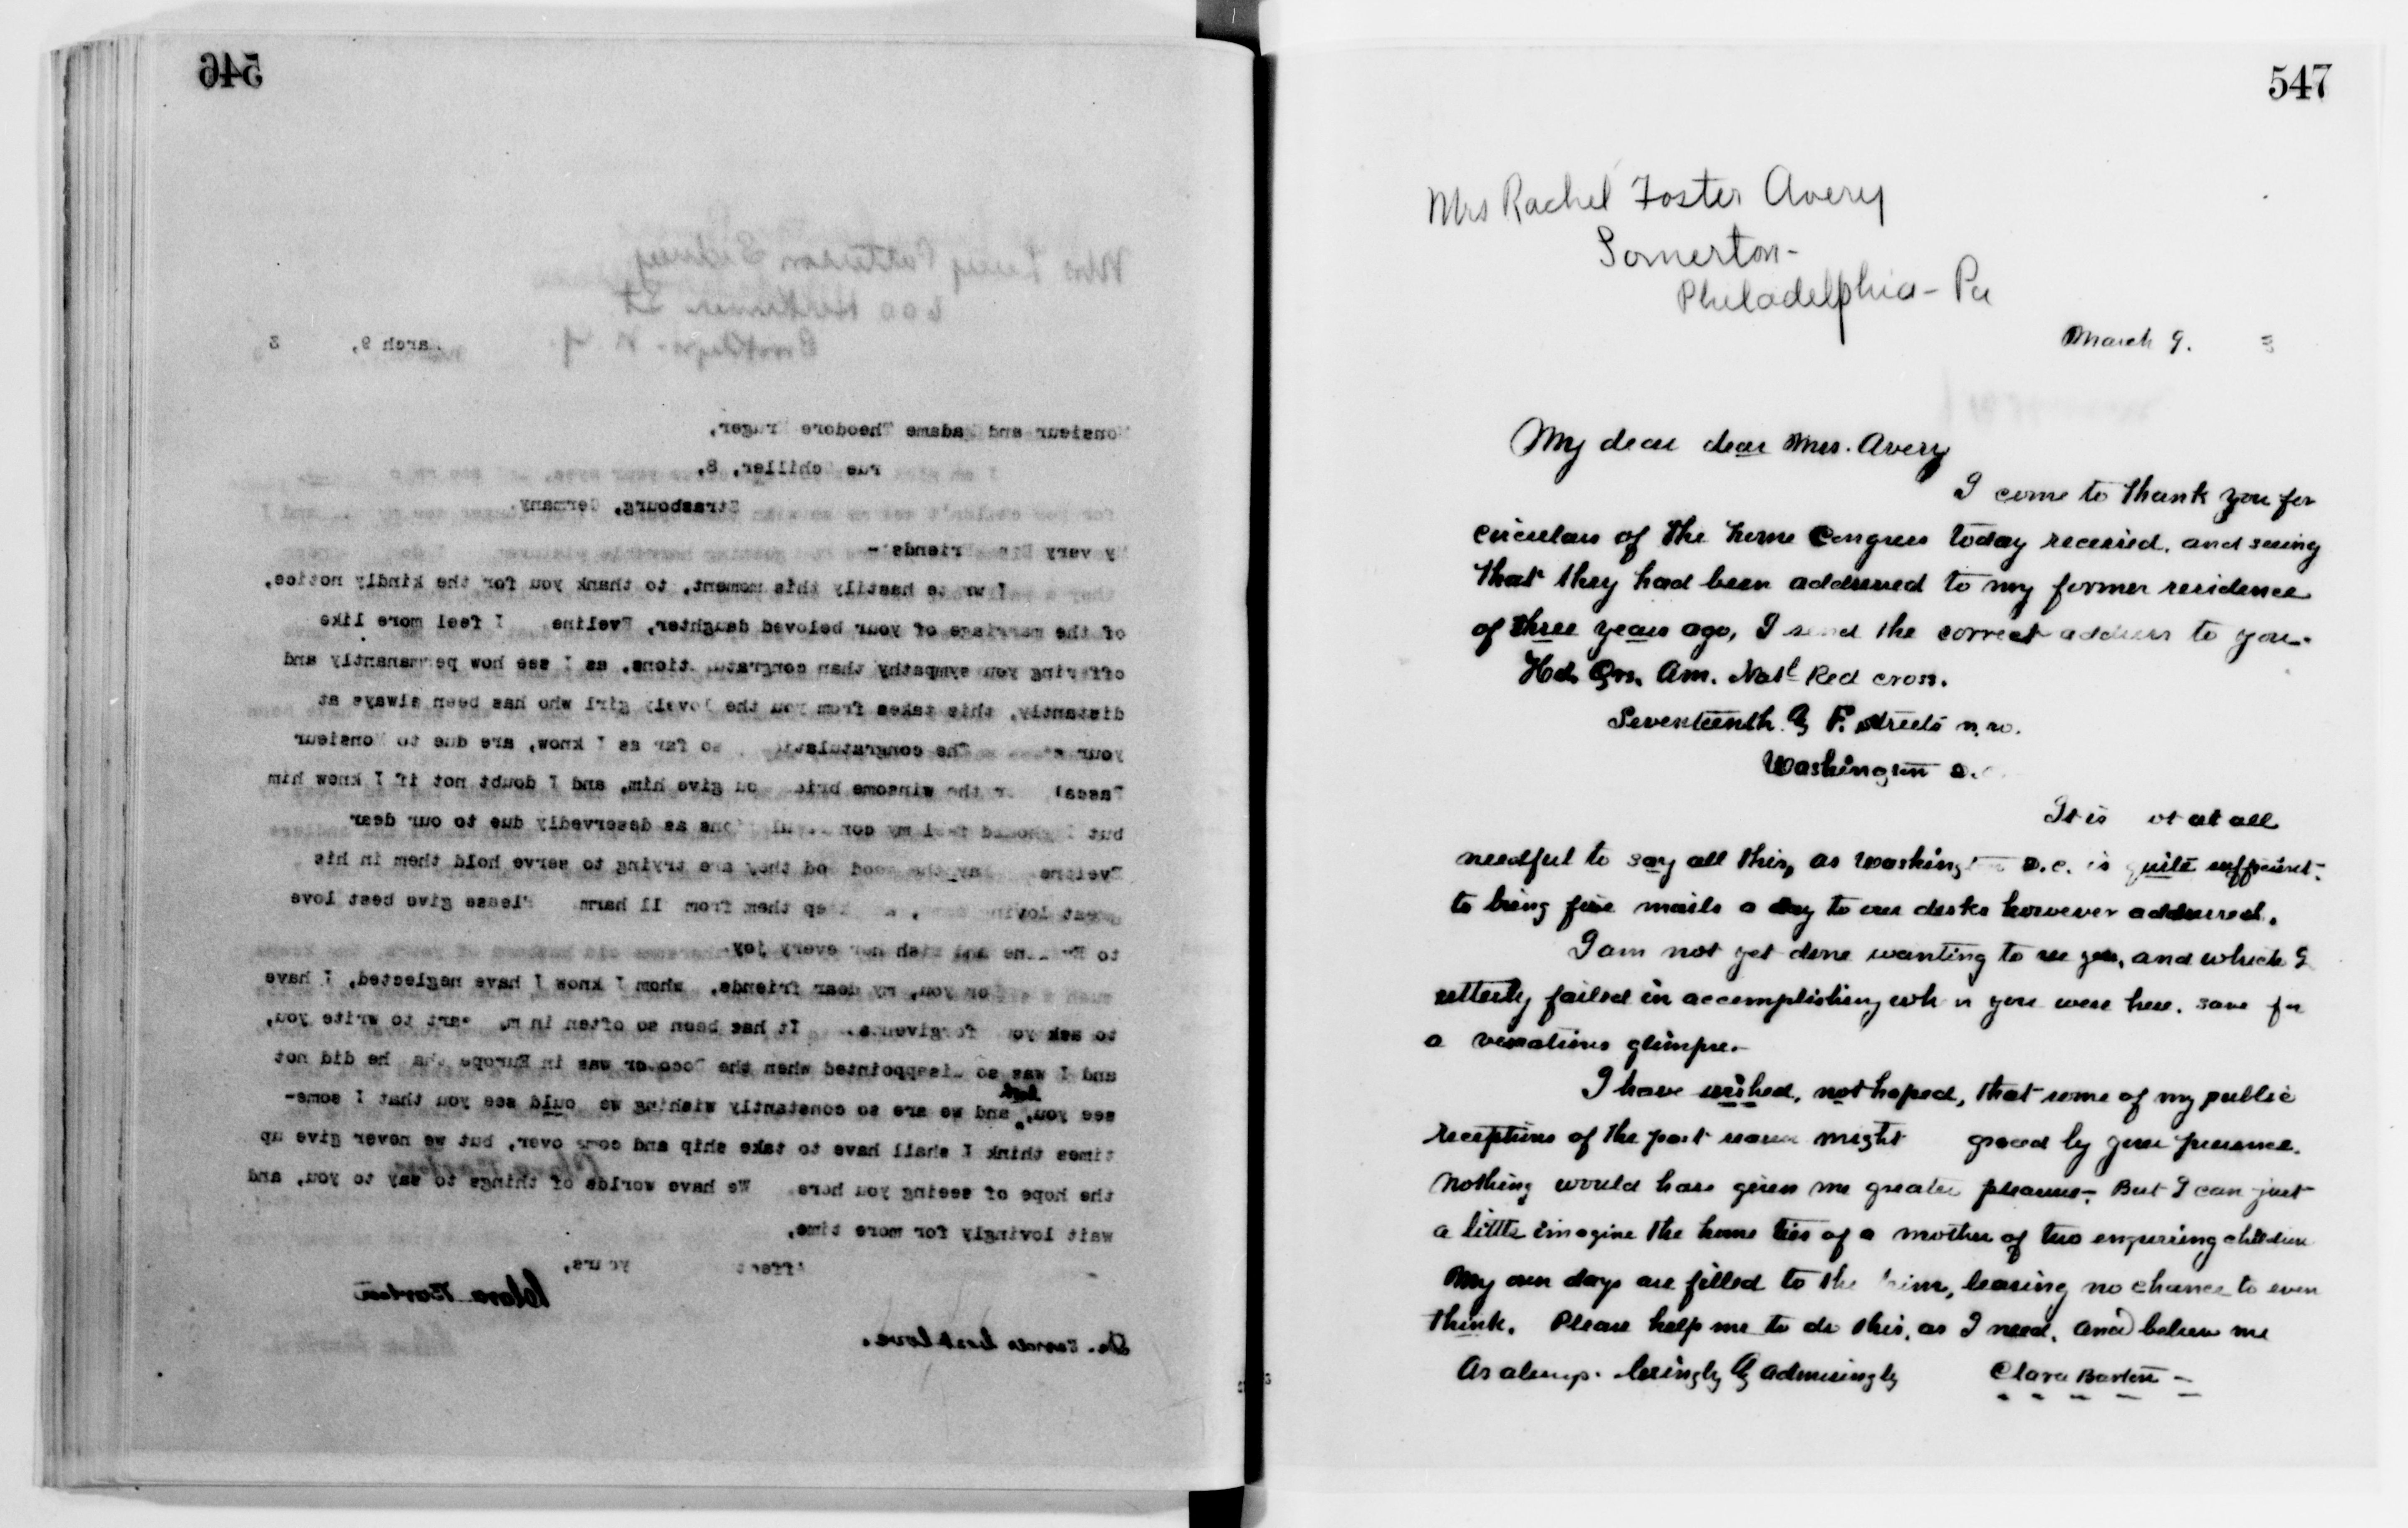 546
March 9, 3
Monsieur and Madame Theodore Kruger,
rue Schiller, 8,
Strasbourg, Germany.
My very friends:-
I wr te hastily this moment, to thank you for the kindly notice,
of the marriage of your beloved daughter, Eveline I feel more like
offering you sympathy than congratulations, as I see how permanantly and
distantly, this takes from you the lovely girl who has been always at
your The congratulations so far as I know, are due to Monsieur
Pascal for the winsome bride you give him, and I doubt not if I knew him
but I should feel my congratulations as deservedly due to our dear
Eveline May the good God they are trying to serve hold them in his
great loving and keep them from all harm Please give best love
to Eveline and wish her every joy.
For you, my dear friends, whom I know I have neglected, I have
to ask your forgiveness. It has been so often in my heart to write you,
and I was so disappointed when the Doctor was in Europe that he did not
see you, and we are so constantly wishing we could see you that I some-
times think I shall have to take ship and come over, but we never give up
the hope of seeing you here. We have worlds of things to say to you, and
wait lovingly for more time,
Affect yours,
Clara Barton
Dr. sends best love.
547
Mrs Rachel Foster Avery
Somerton-
Philadelphia - Pa
March 9. 3
My dear dear Mrs. Avery
I come to thank you for
circulars of the home Congress today received, and seeing
that they had been addressed to my former residence
of three years ago, I send the correct address to you.
Hd. Qrs. Am. Natl Red cross.
Seventeenth & F. streets n.w.
Washington D.
It is ot at all
needful to say all this, as Washington D.C. is quite sufficient
to bring five mails a day to our desks however addressed.
I am not yet done wanting to see you, and which I
utterly failed in accomplishing wh n you were here, save for
a vexatious glimpse.
I have wished, not hoped, that some of my public
receptions of the past season might graced by your presence.
Nothing would have given me greater pleasure. But I can just
a little imagine the home ties of a mother of two enquiring children
My own days are filled to the brim, leaving no chance to even
think. Please help me to do this, as I need, and believe me
As always. lovingly & admiringly Clara Barton -